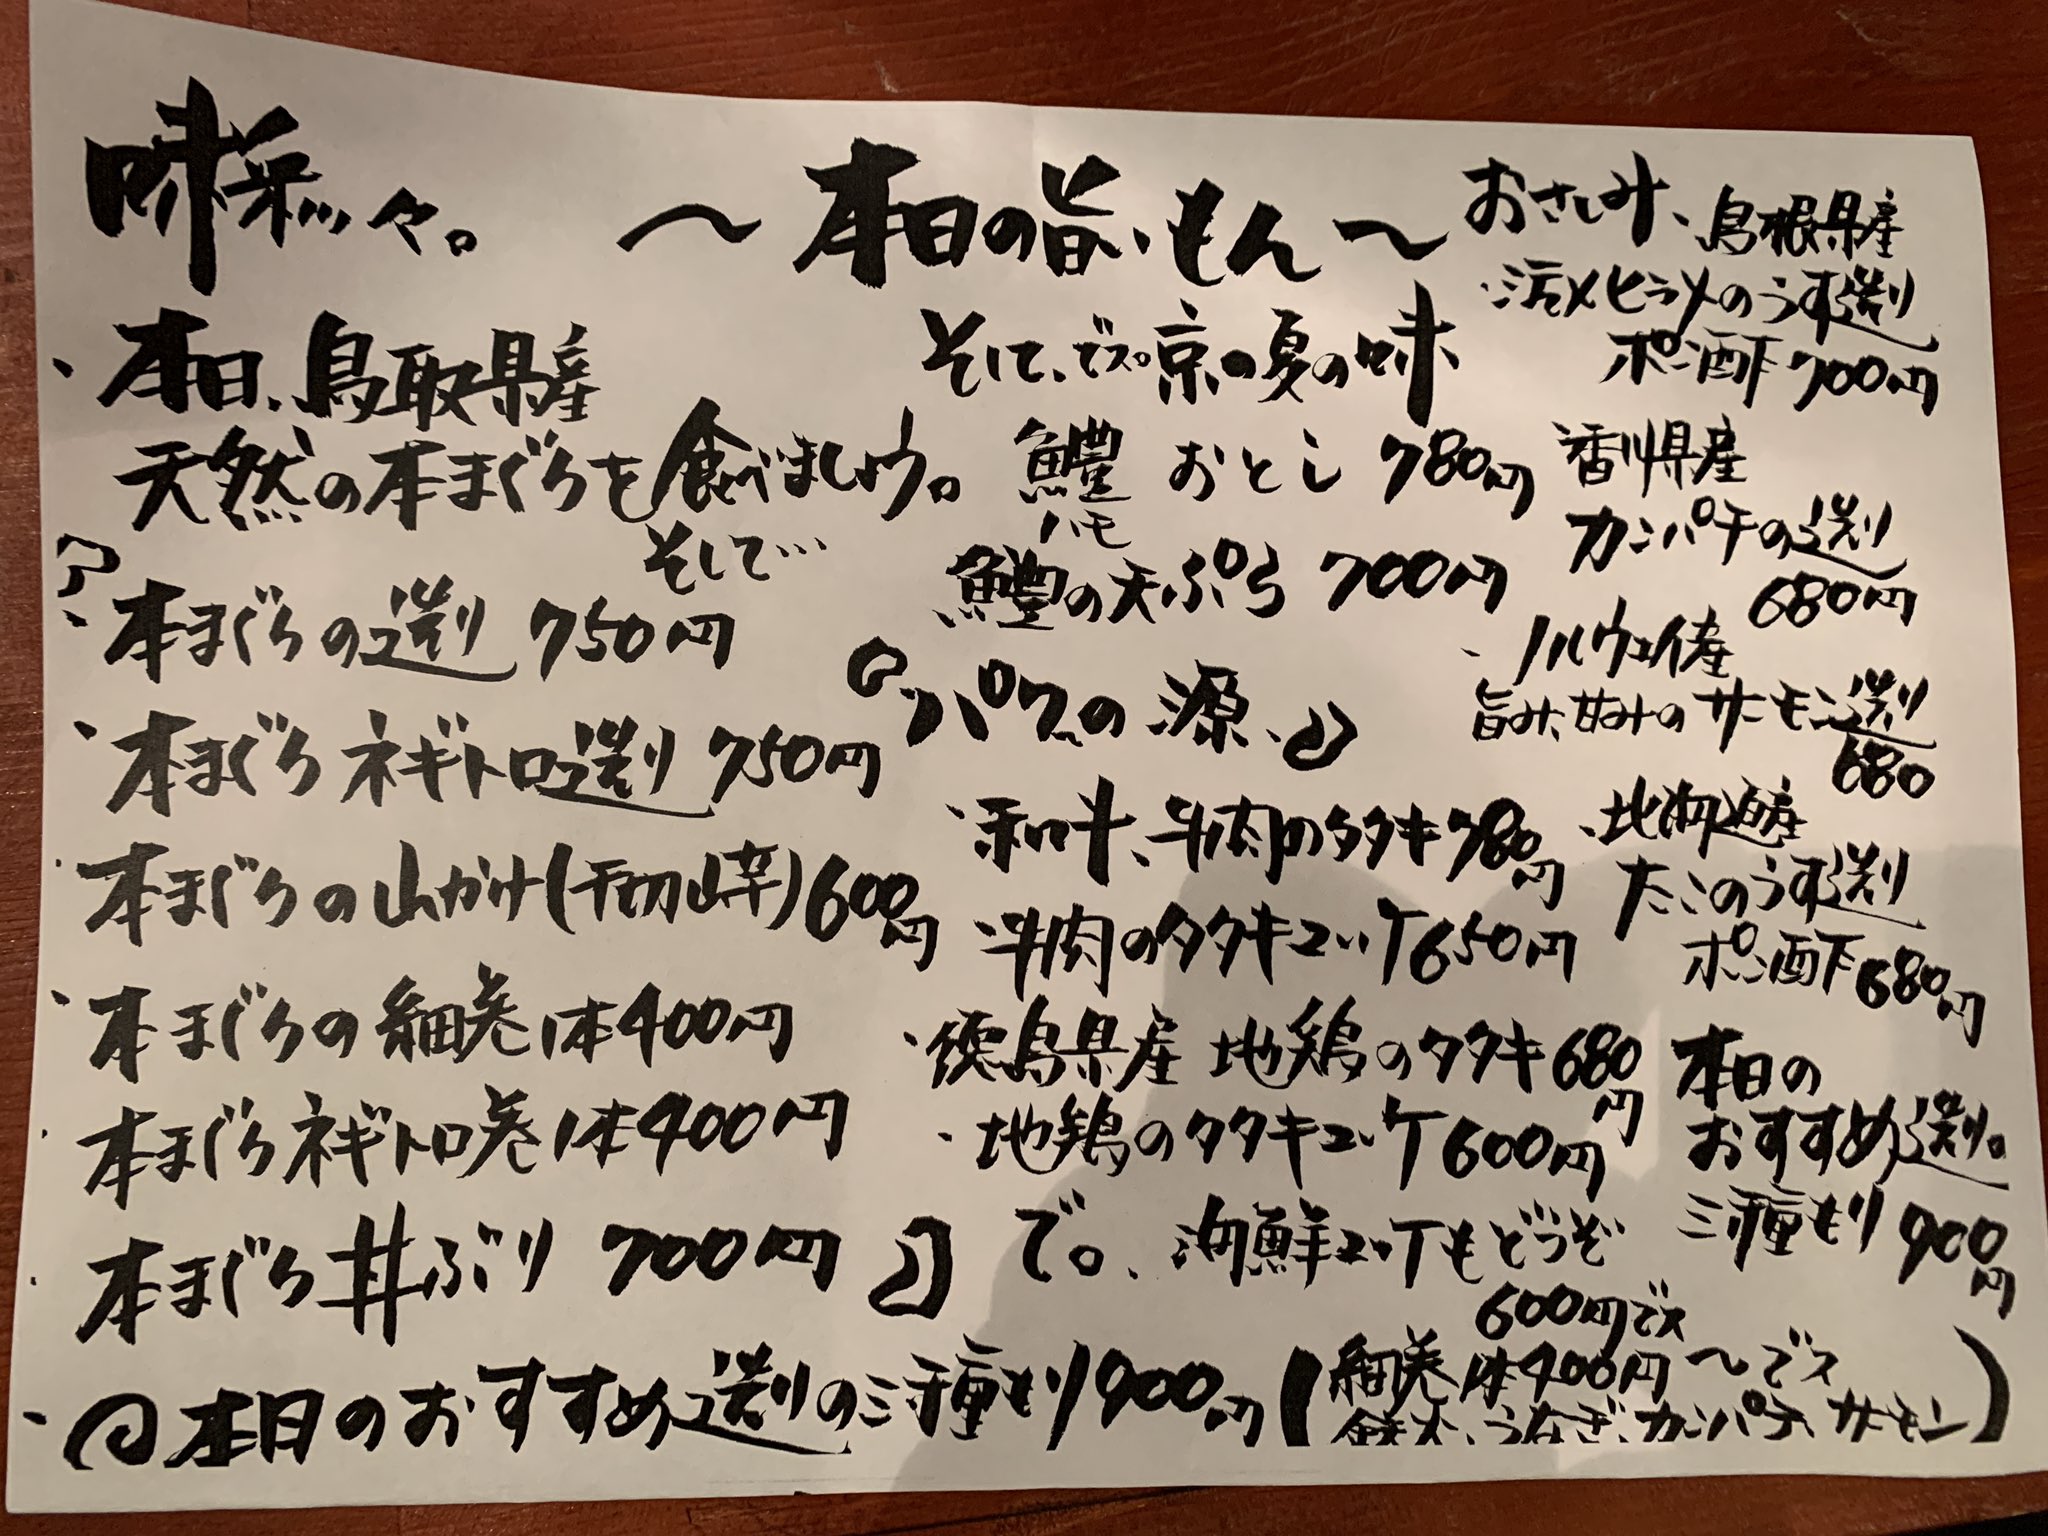 味菜々。
〜本日の旨いもん〜
、本日、鳥取県産
天然の本まぐろを食べましょう。
そして…
本まぐろの造り 750円
、本まぐろ ネギトロ造り 750円
・本まぐろの山かけ(千切山芋)600円
、本まぐろの細巻1本400円
・本まぐろネギトロ巻1本400円
・本まぐろ丼ぶり 700円』
・本日のおすすめ造りの三種もり900円
そして、でス。京の夏の味
鱧 おとし 780円
ハモ
、鱧の天ぷら 700円
『パワーの源、』
・和牛、牛肉のタタキ780円
、牛肉のタタキユッケ650円
・徳島県産 地鶏のタタキ680円
・地鶏のタタキユッケ600円
で。、海鮮ユッケもどうぞ
600円でス
(細巻1本400円〜でス
鉄火、うなぎ、カンパチ、サーモン)
おさしみ、島根県産
・活〆ヒラメのうす造り
ポン酢700円
香川県産
カンパチの造り
680円
・ノルウェイ産
旨み、甘みのサーモン造り
680
・北海道産
たこのうす造り
ポン酢680円
本日の
おすすめ造り。
三種もり900円